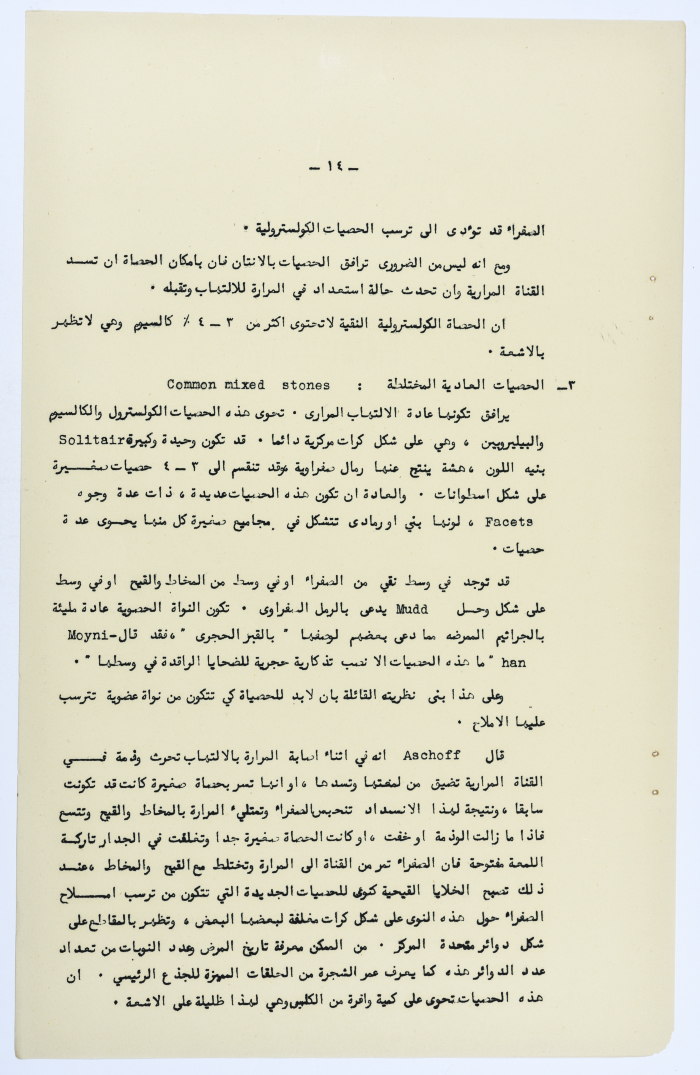 - ١٤ -
الصفراء قد تؤدى الى ترسب الحصيات الكولسترولية ٠
ومع انه ليس من الضرورى ترافق الحصيات بالانتان فان بامكان الحصاة ان تسد
القناة المرارية وان تحدث حالة استعداد في المرارة للالتهاب وتقبله ٠
ان الحصاة الكولسترولية النقية لاتحتوى اكثر من ٣ - ٤ ٪ كالسيوم وهي لاتظهر
بالاشعة ٠
٣- الحصيات العادية المختلطة : Common mixed stones
يرافق تكونها عادة الالتهاب المرارى ٠ تحوى هذه الحصيات الكولسترول والكالسيوم
والبيليروبين ، وهي على شكل كرات مركزية دائما ٠ قد تكون وحيدة وكبيرة Solitair
بنيه اللون ، هشة ينتج عنها رمال صفراوية وقد تنقسم الى ٣ - ٤ حصيات صغيرة
على شكل اسطوانات ٠ والعادة ان تكون هذه الحصيات عديدة ، ذات عدة وجوه
Facets ، لونها بني او رمادى تتشكل في مجاميع صغيرة كل منها يحوى عدة
حصيات ٠
قد توجد في وسط نقي من الصفراء او في وسط من المخاط والقيح او في وسط
على شكل وحل Mudd يدعى بالرمل الصفراوى ٠ تكون النواة الحصوية عادة مليئة
بالجراثيم الممرضه مما دعى بعضهم لوصفها " بالقبر الحجرى " ، فقد قال Moyni-
han " ما هذه الحصيات الا نصب تذكارية حجرية للضحايا الراقدة في وسطها " ٠
وعلى هذا بنى نظريته القائلة بان لابد للحصياة كي تتكون من نواة عضوية تترسب
عليها الاملاح ٠
قال Aschoff انه في اثناء اصابة المرارة بالالتهاب تحرث وذمة في
القناة المرارية تضيق من لمعتها وتسدها ، او انها تسر بحصاة صغيرة كانت قد تكونت
سابقا ، ونتيجة لهذا الانسداد تنحبس الصفراء وتمتليء المرارة بالمخاط والقيح وتتسع
فاذا ما زالت الوذمة او خفت ، او كانت الحصاة صغيرة جدا وتغلغلت في الجدار تاركة
اللمعة مفتوحة فان الصفراء تمر من القناة الى المرارة وتختلط مع القيح والمخاط ، عند
ذلك تصبح الخلايا القيحية كنوى للحصيات الجديدة التي تتكون من ترسب املاح
الصفراء حول هذه النوى على شكل كرات مغلفة لبعضها البعض ، وتظهر بالمقاطع على
شكل دوائر متحدة المركز ٠ من الممكن معرفة تاريخ المرض وعدد النوبات من تعداد
عدد الدوائر هذه كما يعرف عمر الشجرة من الحلقات المميزة للجذع الرئيسي ٠ ان
هذه الحصيات تحوى على كمية وافرة من الكلس وهي لهذا ظليلة على الاشعة ٠